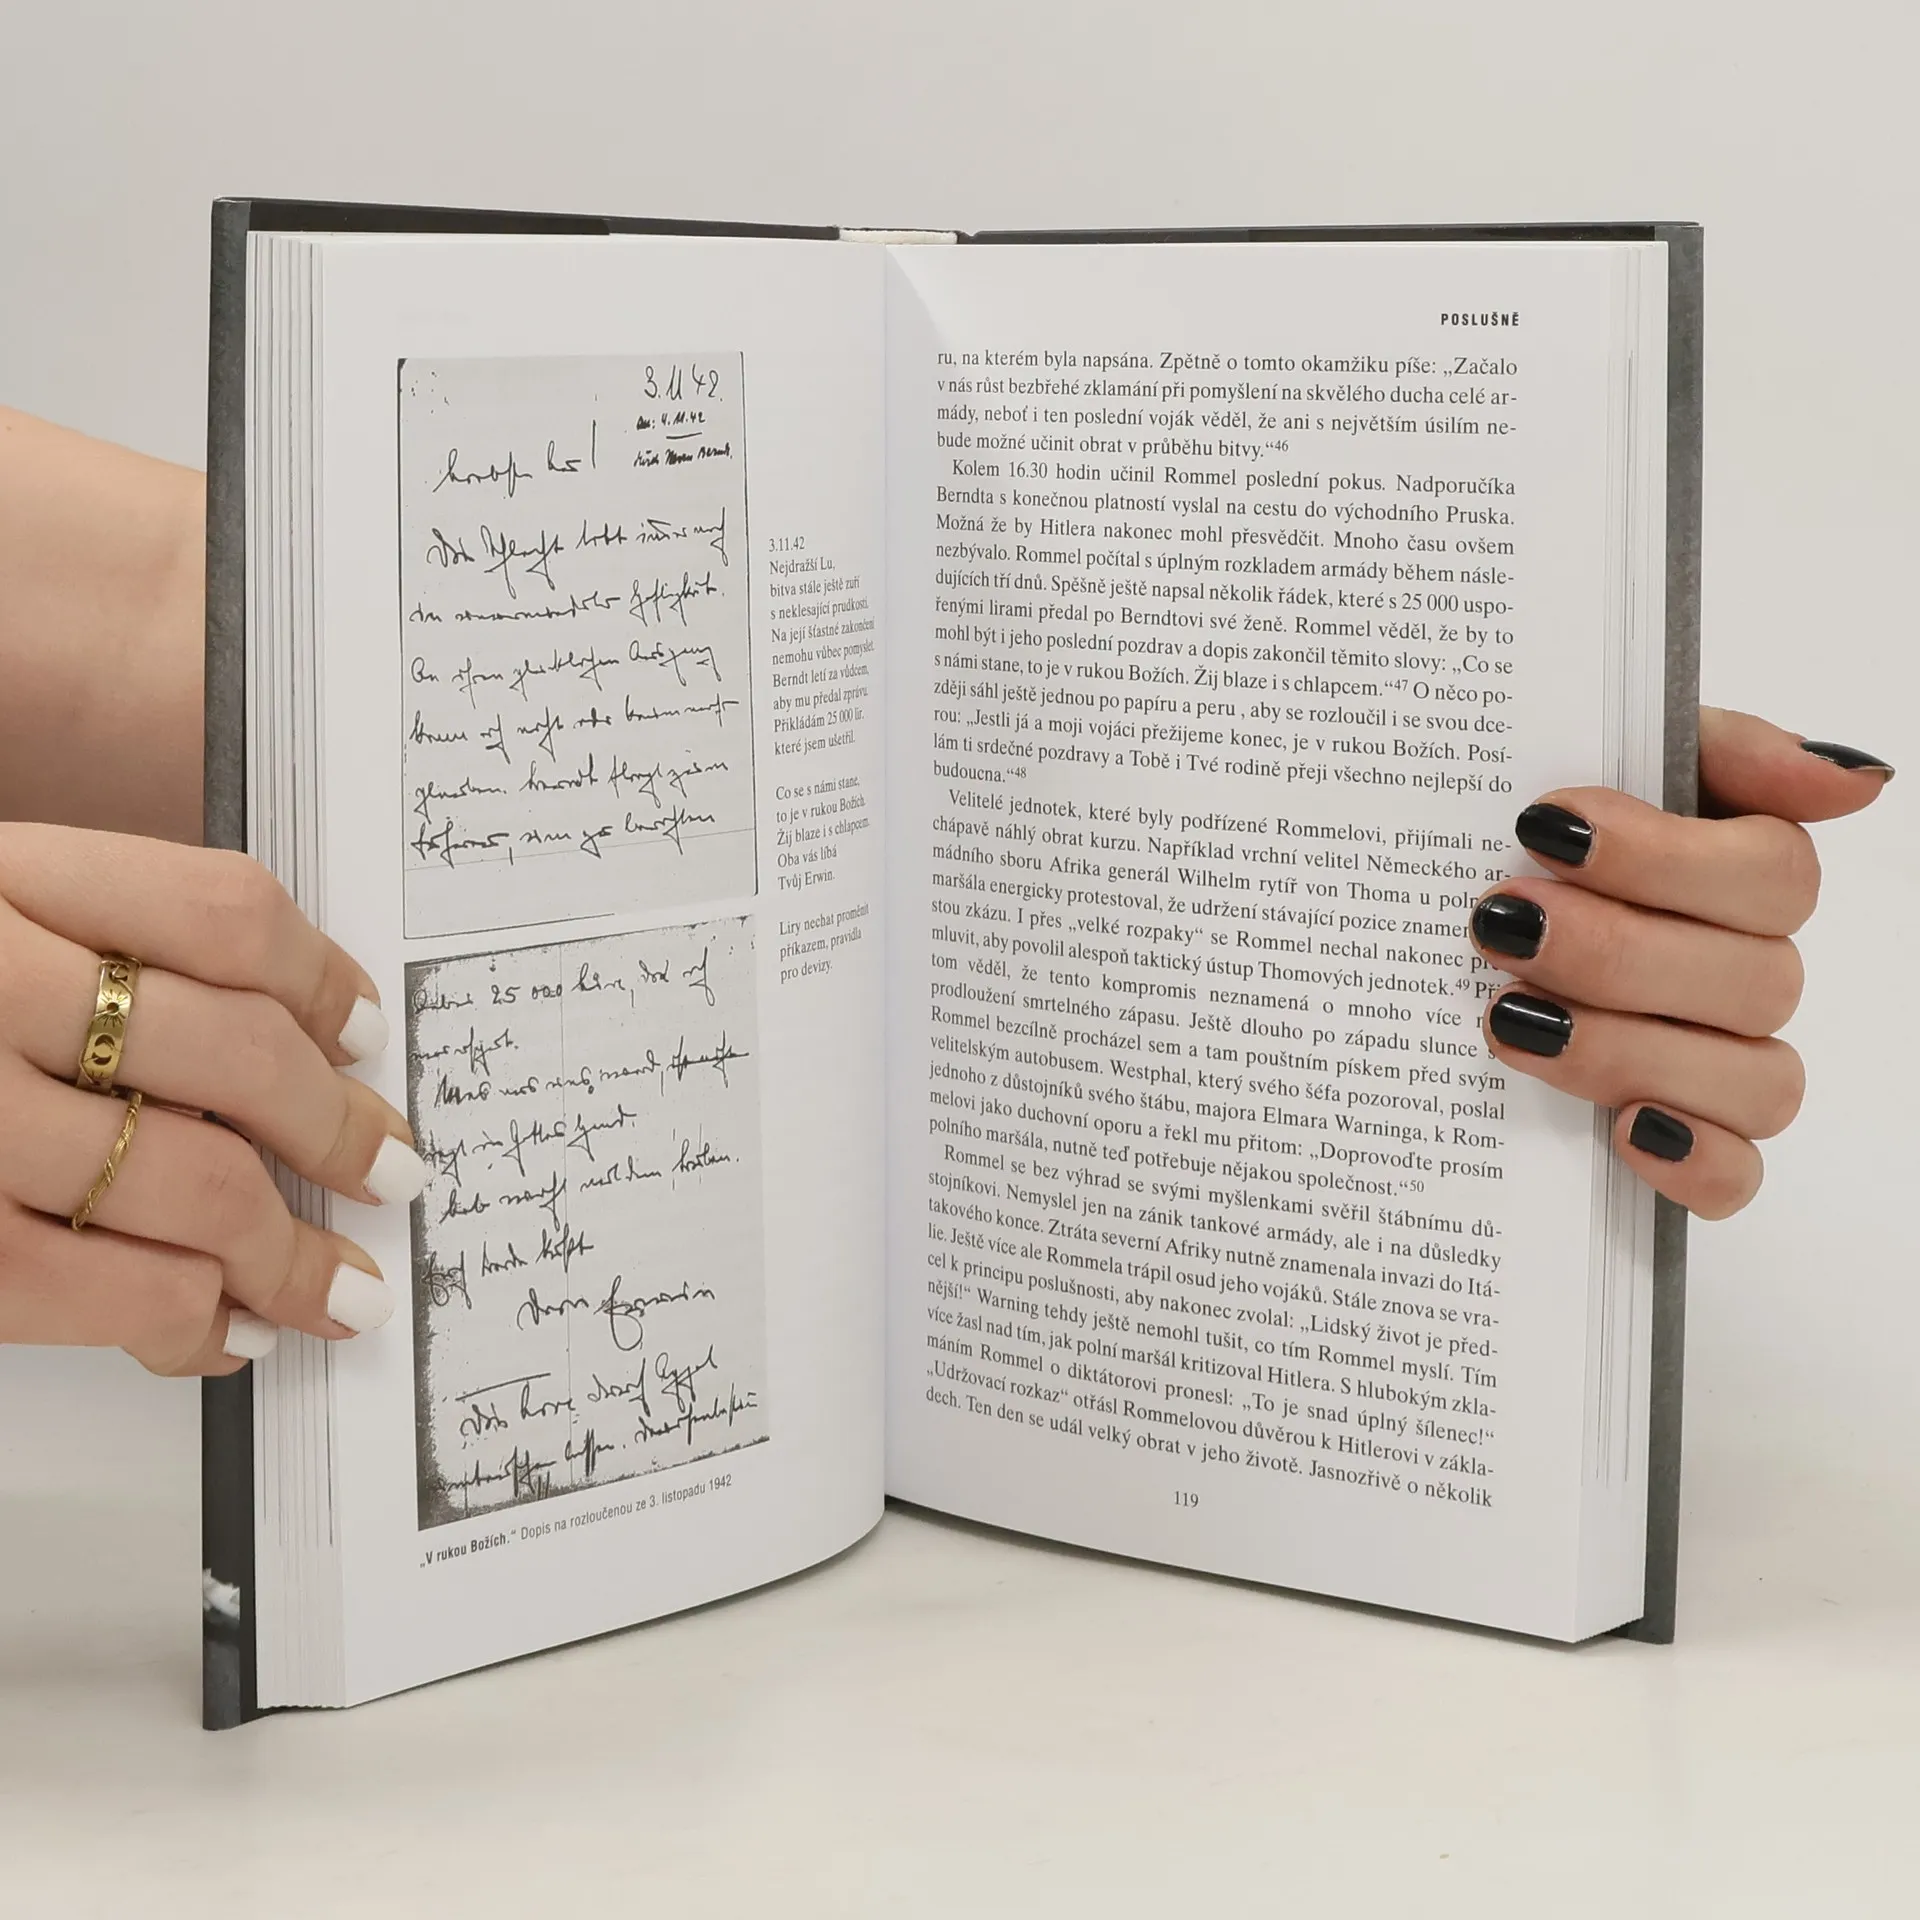 3.11.42.
An: 4.11.42
3.11.42
Nejdražší Lu,
bitva stále ještě zuří
s neklesající prudkostí.
Na její šťastné zakončení
nemohu vůbec pomyslet.
Berndt letí za vůdcem,
aby mu předal zprávu.
Přikládám 25 000 lir,
které jsem ušetřil.
Co se s námi stane,
to je v rukou Božích.
Žij blaze i s chlapcem.
Oba vás líbá
Tvůj Erwin.
Liry nechat proměnit
příkazem, pravidla
pro devizy.
25 000 Lire
Dein Erwin
„V rukou Božích.“ Dopis na rozloučenou ze 3. listopadu 1942
POSLUŠNĚ
ru, na kterém byla napsána. Zpětně o tomto okamžiku píše: „Začalo
v nás růst bezbřehé zklamání při pomyšlení na skvělého ducha celé ar-
mády, neboť i ten poslední voják věděl, že ani s největším úsilím ne-
bude možné učinit obrat v průběhu bitvy.“46
Kolem 16.30 hodin učinil Rommel poslední pokus. Nadporučíka
Berndta s konečnou platností vyslal na cestu do východního Pruska.
Možná že by Hitlera nakonec mohl přesvědčit. Mnoho času ovšem
nezbývalo. Rommel počítal s úplným rozkladem armády během násle-
dujících tří dnů. Spěšně ještě napsal několik řádek, které s 25 000 uspo-
řenými lirami předal po Berndtovi své ženě. Rommel věděl, že by to
mohl být i jeho poslední pozdrav a dopis zakončil těmito slovy: „Co se
s námi stane, to je v rukou Božích. Žij blaze i s chlapcem.“47 O něco po-
zději sáhl ještě jednou po papíru a peru , aby se rozloučil i se svou dce-
rou: „Jestli já a moji vojáci přežijeme konec, je v rukou Božích. Posí-
lám ti srdečné pozdravy a Tobě i Tvé rodině přeji všechno nejlepší do
budoucna.“48
Velitelé jednotek, které byly podřízené Rommelovi, přijímali ne-
chápavě náhlý obrat kurzu. Například vrchní velitel Německého ar-
mádního sboru Afrika generál Wilhelm rytíř von Thoma u poln
maršála energicky protestoval, že udržení stávající pozice znamen
stou zkázu. I přes „velké rozpaky“ se Rommel nechal nakonec př
mluvit, aby povolil alespoň taktický ústup Thomových jednotek.49 Při
tom věděl, že tento kompromis neznamená o mnoho více n
prodloužení smrtelného zápasu. Ještě dlouho po západu slunce s
Rommel bezcílně procházel sem a tam pouštním pískem před svým
velitelským autobusem. Westphal, který svého šéfa pozoroval, poslal
jednoho z důstojníků svého štábu, majora Elmara Warninga, k Rom-
melovi jako duchovní oporu a řekl mu přitom: „Doprovoďte prosím
polního maršála, nutně teď potřebuje nějakou společnost.“50
Rommel se bez výhrad se svými myšlenkami svěřil štábnímu dů-
stojníkovi. Nemyslel jen na zánik tankové armády, ale i na důsledky
takového konce. Ztráta severní Afriky nutně znamenala invazi do Itá-
lie. Ještě více ale Rommela trápil osud jeho vojáků. Stále znova se vra-
cel k principu poslušnosti, aby nakonec zvolal: „Lidský život je před-
nější!“ Warning tehdy ještě nemohl tušit, co tím Rommel myslí. Tím
více žasl nad tím, jak polní maršál kritizoval Hitlera. S hlubokým zkla-
máním Rommel o diktátorovi pronesl: „To je snad úplný šílenec!“
„Udržovací rozkaz“ otřásl Rommelovou důvěrou k Hitlerovi v zákla-
dech. Ten den se udál velký obrat v jeho životě. Jasnozřivě o několik
119